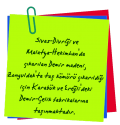 Sivas-Divriği ve
Malatya-Hekimhan'da
çıkarılan Demir madeni,
Zonguldak'ta taş kömürü çıkarıldığı
için Karabük ve Ereğli'deki
Demir-Çelik fabrikalarına
taşınmaktadır.